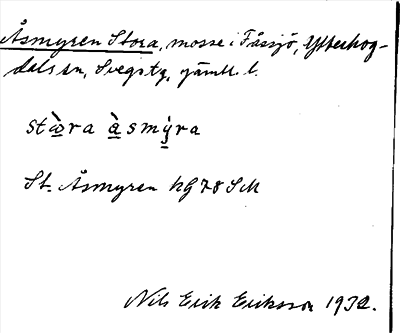 Åsmyren Stora, mosse i Fåssjö, Ytterhog-
dals sn, Svegs tg, Jämtl. l.
stæ̀ra àsmỳra
St. Åsmyren kg 78 SM
Nils Erik Eriksson 1932.